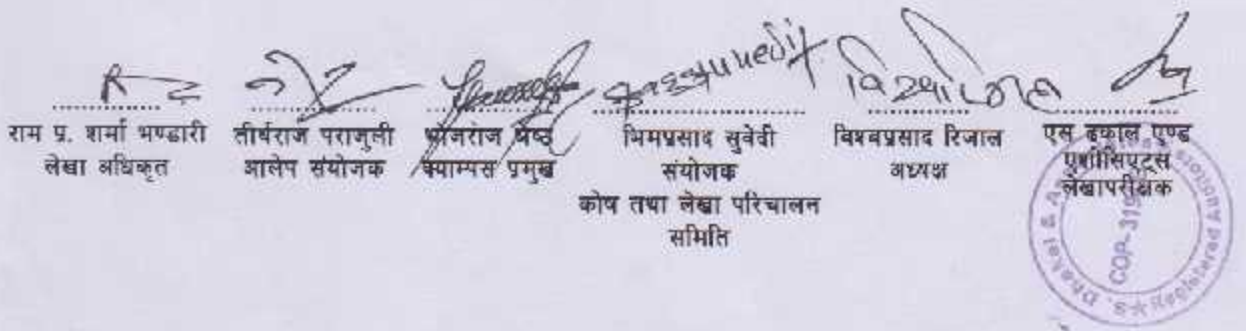 राम प्र. शर्मा भण्डारी
लेखा अधिकृत
तीर्थराज पराजुली
आलेप संयोजक
भोजराज श्रेष्ठ
क्याम्पस प्रमुख
भिमप्रसाद सुवेदी
संयोजक
कोष तथा लेखा परिचालन
समिति
विश्वप्रसाद रिजाल
अध्यक्ष
एस ढकाल एण्ड
एशोसिएट्स
लेखापरीक्षक
S. Dhakal & Associates
Registered Auditor
COP-319